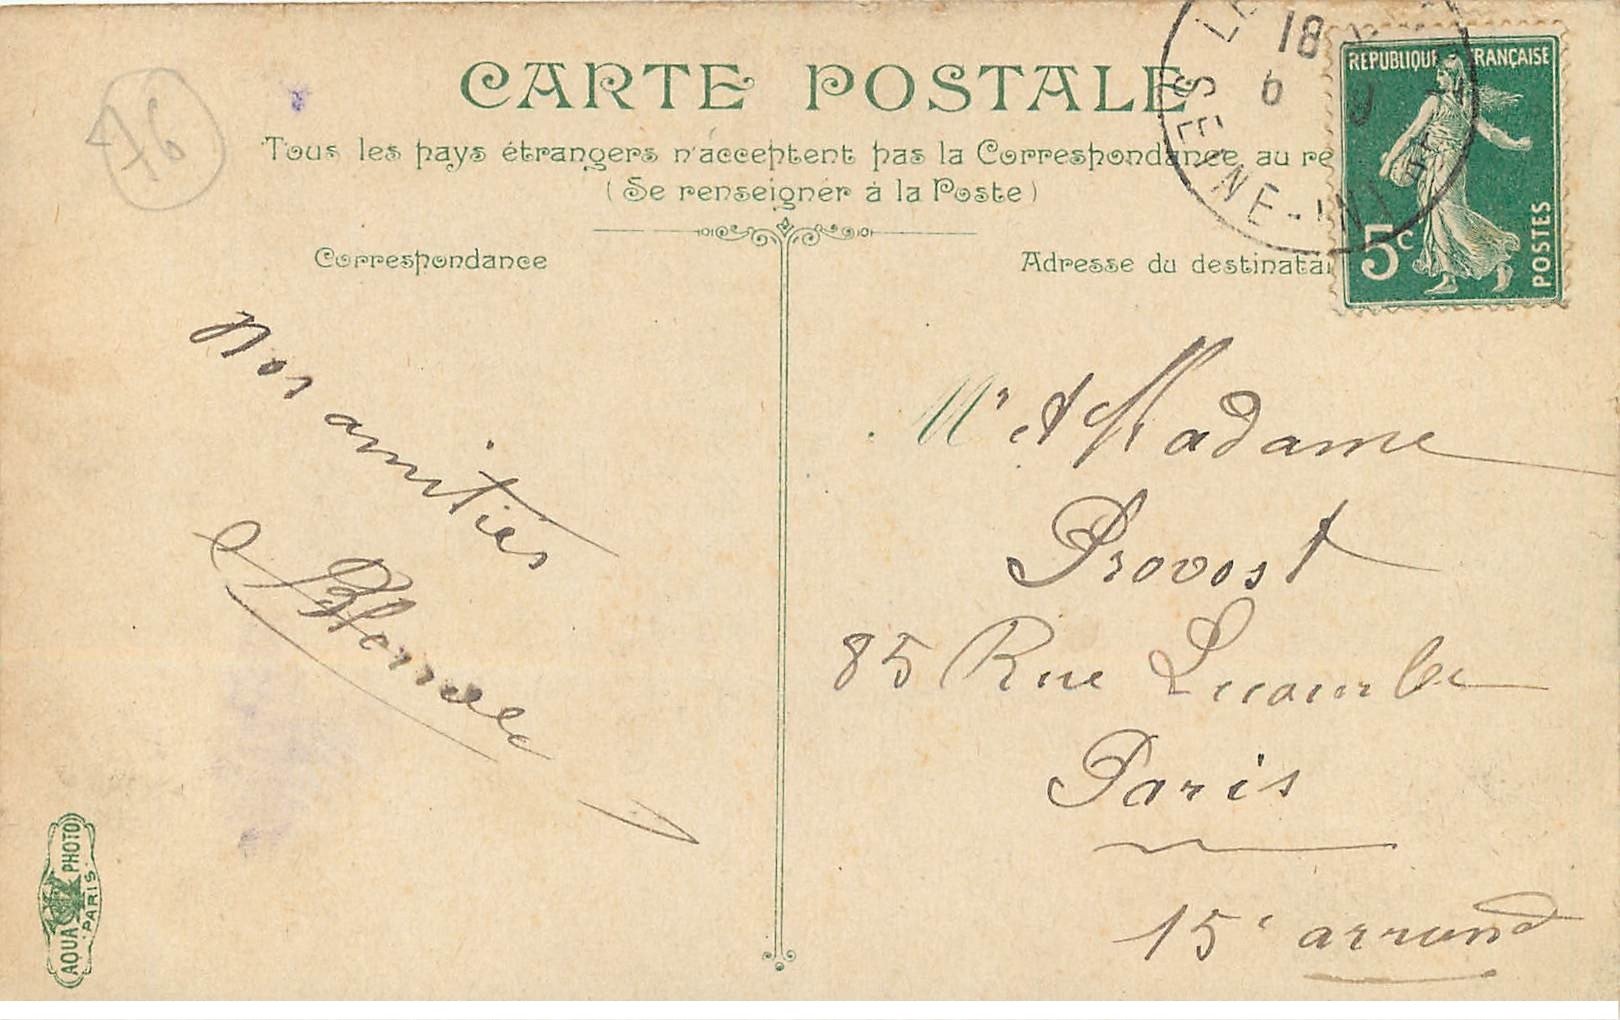 76
CARTE POSTALE
Tous les pays étrangers n'acceptent pas la Correspondance au re
(Se renseigner à la Poste)
Correspondance
Adresse du destinatai
LE
18
6 9
SEINE-INF
REPUBLIQUE FRANÇAISE
5c
POSTES
Nos amitiés
Mr et Madame
Provost
85 Rue Lecourbe
Paris
15e arrond
AQUA PHOTO
PARIS